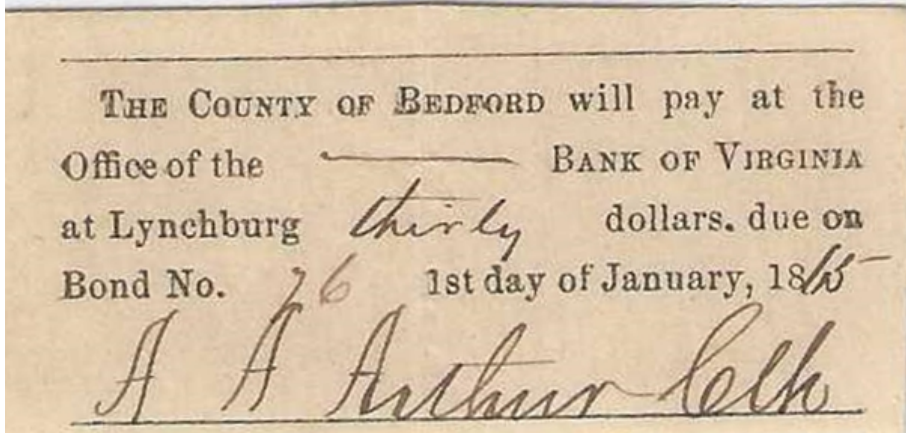 THE COUNTY OF BEDFORD will pay at the
Office of the ——— BANK OF VIRGINIA
at Lynchburg thirty dollars. due on
Bond No. 26 1st day of January, 1865
A A Arthur Clk